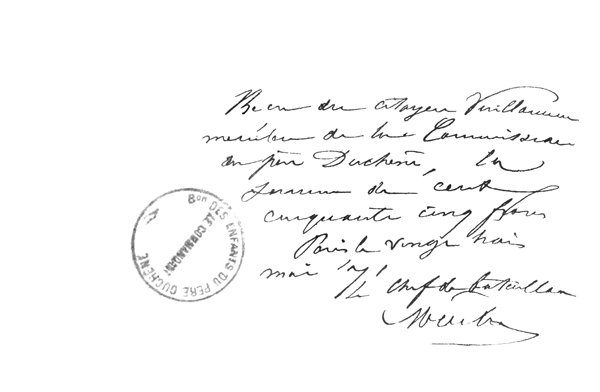 Reçu du citoyen Vuillaume
membre de la Commission
du père Duchêne, la
somme de cent
cinquante cinq francs
Paris le vingt trois
mai 71
Le chef de bataillon
Bon DES ENFANTS DU PERE DUCHÊNE
LE COMMANDANT